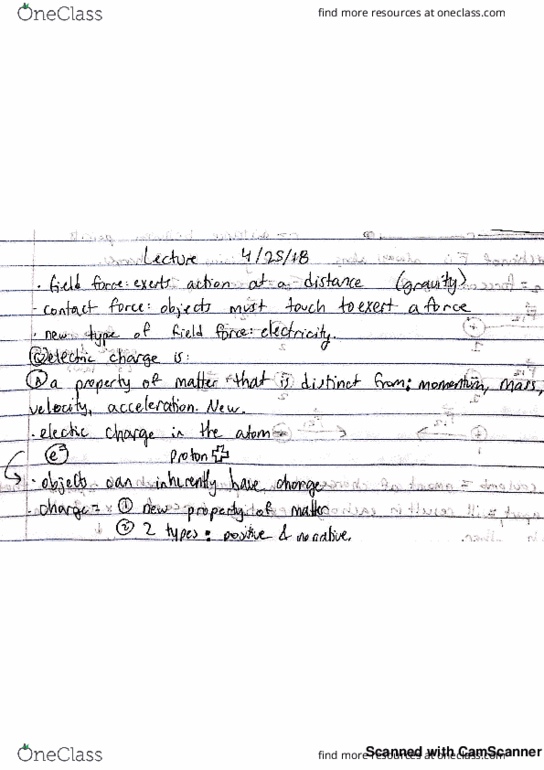 OneClass
find more resources at oneclass.com
Lecture 4/25/18
· field force: exerts action at a distance (gravity)
- contact force: objects must touch to exert a force
· new type of field force: electricity.
Q electric charge is:
A a property of matter that is distinct from: momentum, mass,
velocity, acceleration. New.
· electic charge in the atom
e⁻ Proton +
· objects can inherently have charge
· charge = ① new property of matter
② 2 types: positive & negative.
OneClass
find more resources at oneclass.com
Scanned with CamScanner